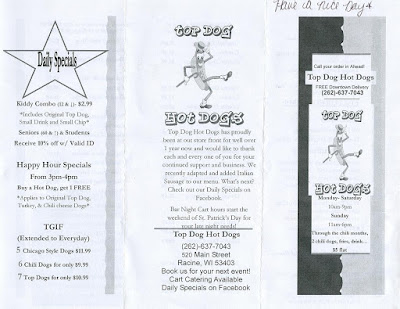 Have a nice day
Daily Specials
Kiddy Combo (12 & ↓)- $2.99
*Includes Original Top Dog,
Small Drink and Small Chip*
Seniors 60 & ↑ & Students
Receive 10% off w/ Valid ID
Happy Hour Specials
From 3pm-4pm
Buy a Hot Dog, get 1 FREE
*Applies to Original Top Dog,
Turkey, & Chili cheese Dogs*
TGIF
(Extended to Everyday)
5 Chicago Style Dogs $11.99
6 Chili Dogs for only $9.99
7 Top Dogs for only $10.99
TOP DOG
HOT DOGS
Top Dog Hot Dogs has proudly
been at our store front for well over
1 year now and would like to thank
each and every one of you for your
continued support and business. We
recently adapted and added Italian
Sausage to our menu. What's next?
Check out our Daily Specials on
Facebook.
Bar Night Cart hours start the
weekend of St. Patrick's Day for
your late night needs!
Top Dog Hot Dogs
(262)-637-7043
520 Main Street
Racine, WI 53403
Book us for your next event!
Cart Catering Available
Daily Specials on Facebook
Call your order in Ahead!
Top Dog Hot Dogs
FREE Downtown Delivery
(262)-637-7043
TOP DOG
HOT DOGS
Monday- Saturday
10am-9pm
Sunday
11am-6pm
Through the chili months,
2 chili dogs, fries, drink...
$5 flat